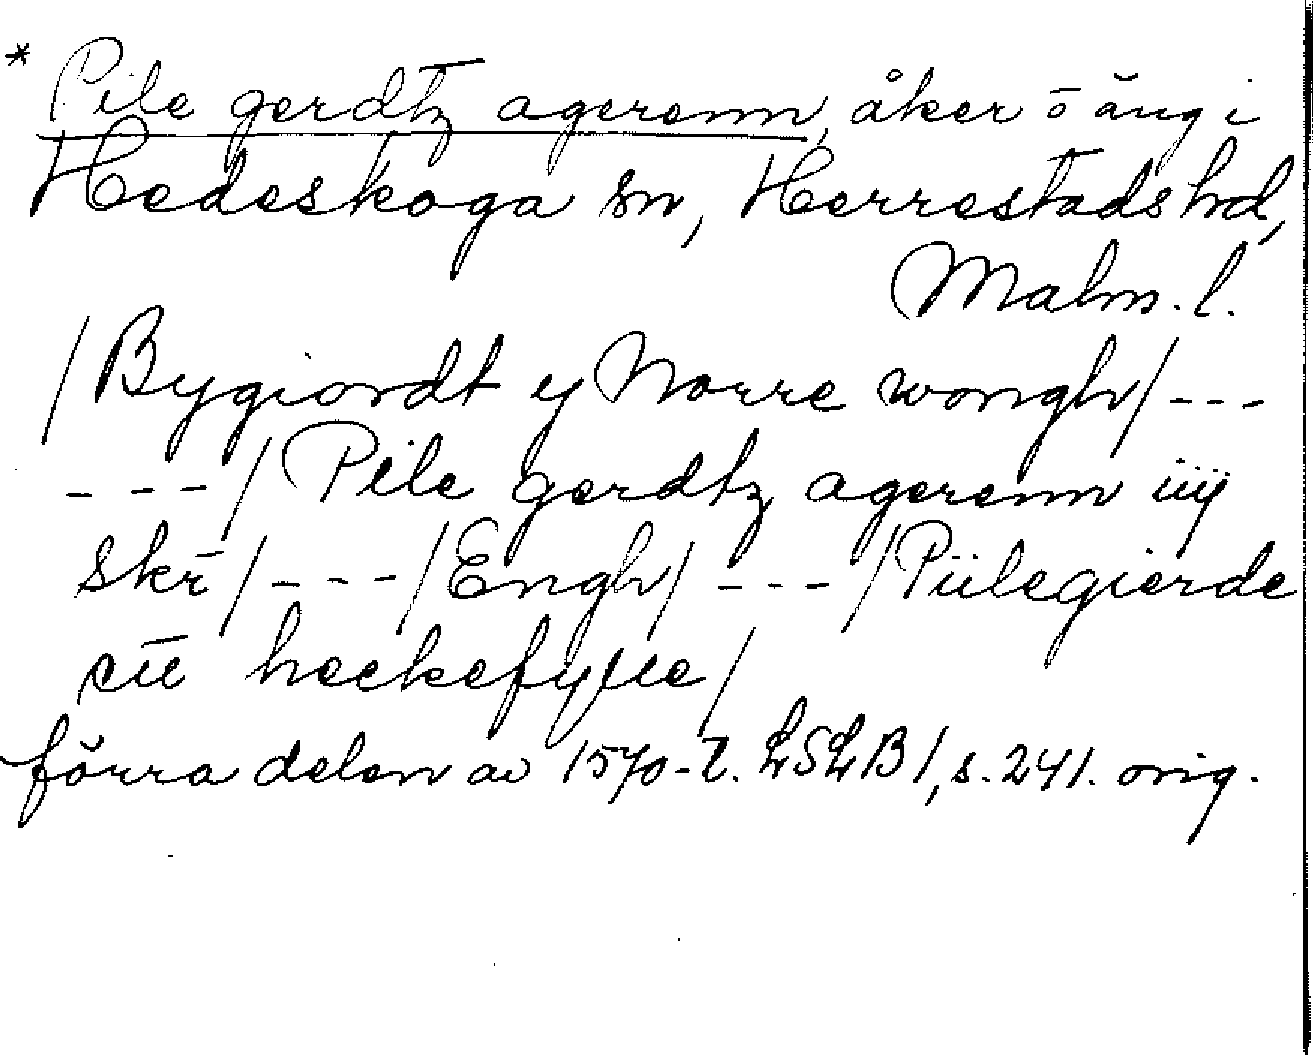 * Pile gerdtz agerenn, åker o äng i
Hedeskoga sn, Herrestads hd,
Malm. l.
/Bygiordt y Norre wongh/---
---/Pile gerdtz agerenn iiij
skr̄/---/Engh/---/Piilegierde
heckefylle/
förra delen av 1570-t. LSLB1, s. 241. orig.